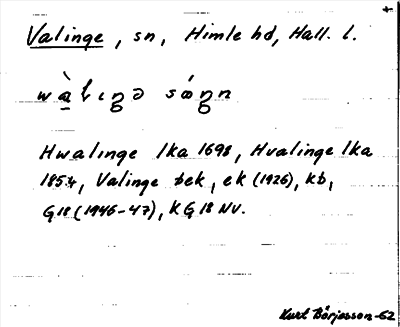 Valinge, sn, Himle hd, Hall. l.
Hwalinge lka 1698, Hvalinge lka
1854, Valinge bek, ek (1926), kb,
G18 (1946-47), KG 18 NV.
Kurt Börjesson-62